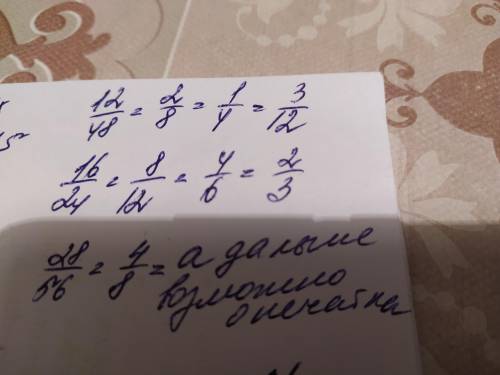 12/48 = 2/8 = 1/4 = 3/12
16/24 = 8/12 = 4/6 = 2/3
28/56 = 4/8 = а дальше
возможно
опечатка